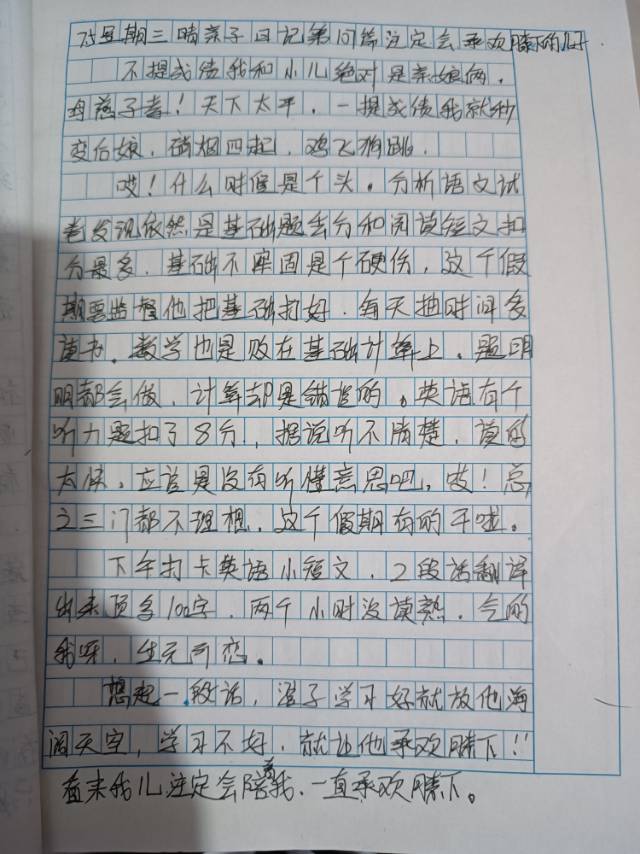 25星期三晴亲子日记第101篇注定会承欢膝下的儿子
不提成绩我和小儿绝对是亲娘俩，
母慈子孝！天下太平，一提成绩我就秒
变后娘，硝烟四起，鸡飞狗跳.
哎！什么时候是个头。分析语文试
卷发现依然是基础题丢分和阅读短文扣
分最多，基础不牢固是个硬伤，这个假
期要监督他把基础打好，每天抽时间多
读书。数学也是败在基础计算上，题明
明都会做，计算却是错的。英语有个
听力题扣了8分，据说听不清楚，读的
太快，应该是没有听懂意思吧，哎！总
之三门都不理想，这个假期有的干啦。
下午打卡英语小短文，2段话翻译
出来顶多100字，两个小时没读熟，气的
我呀，生无可恋。
想起一段话，孩子学习好就放他海
阔天空，学习不好，就让他承欢膝下!!
看来我儿注定会陪着我，一直承欢膝下。